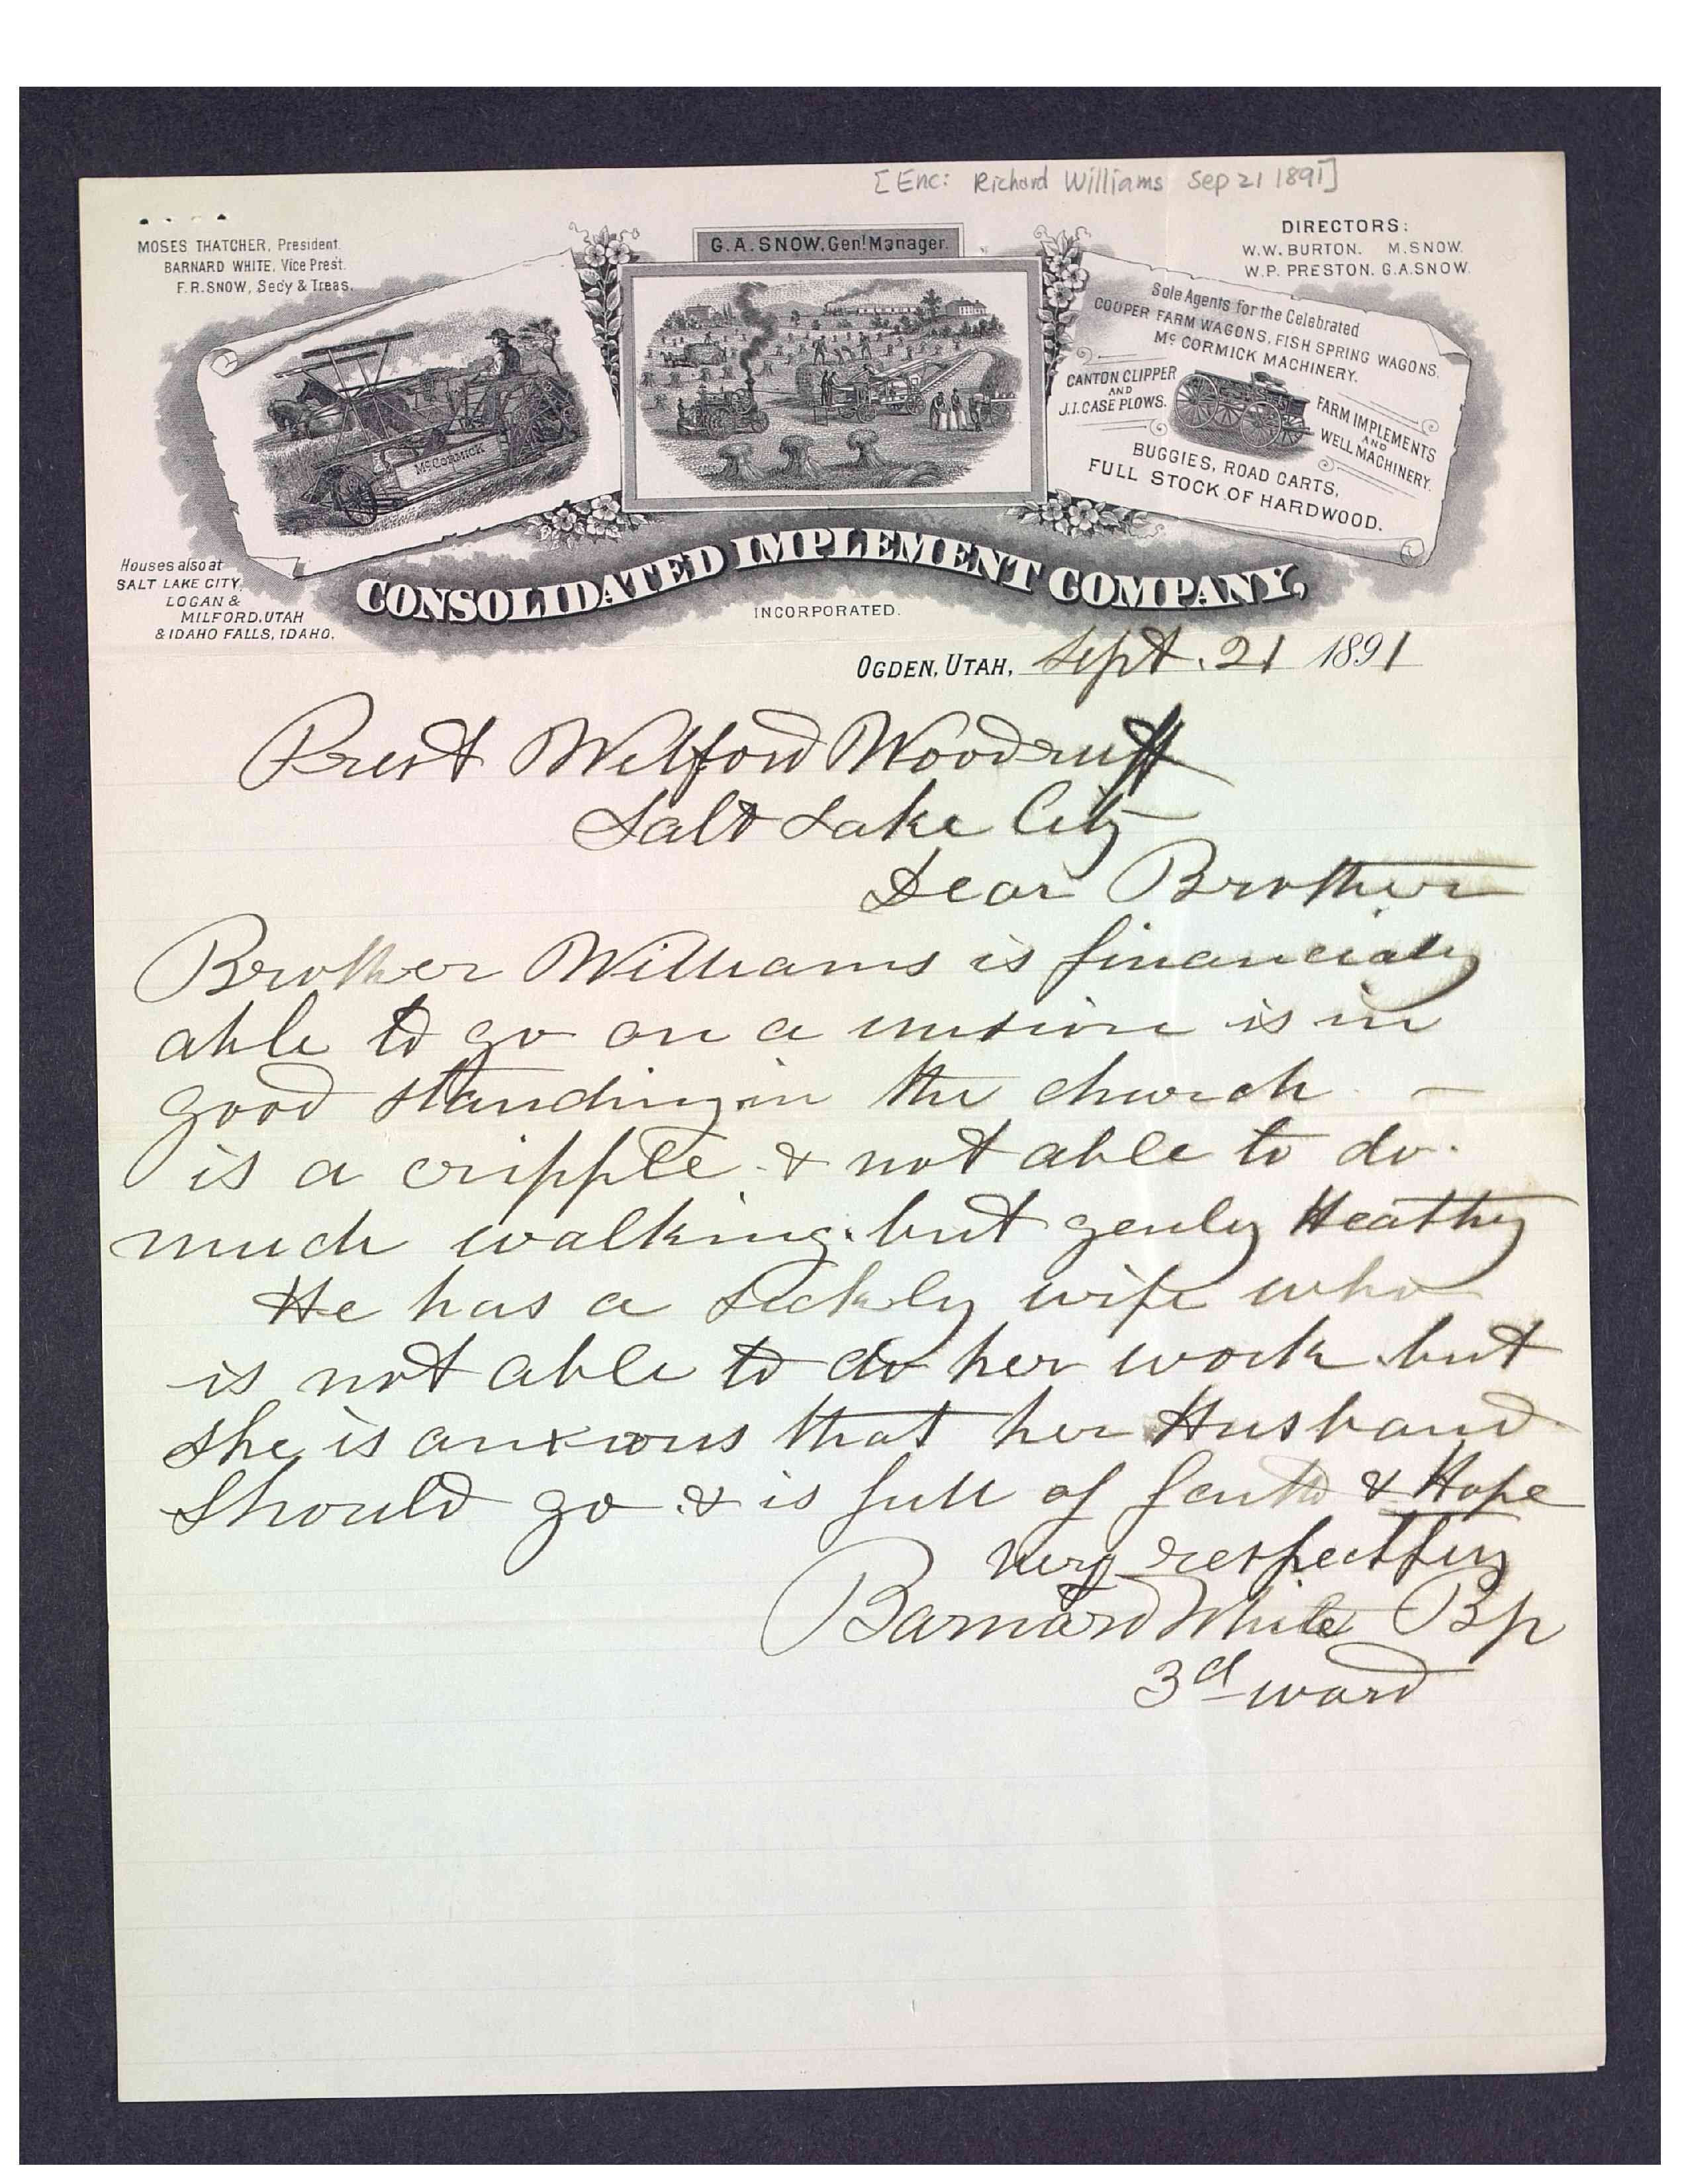 [Enc: Richard Williams Sep 21 1891]
MOSES THATCHER, President.
BARNARD WHITE, Vice Prest.
F.R. SNOW, Secy & Treas.
G.A. SNOW, Genl Manager.
DIRECTORS:
W.W. BURTON. M. SNOW.
W.P. PRESTON. G.A. SNOW.
McCORMICK
Sole Agents for the Celebrated
COOPER FARM WAGONS, FISH SPRING WAGONS.
Mc CORMICK MACHINERY.
CANTON CLIPPER
AND
J.I. CASE PLOWS.
FARM IMPLEMENTS
AND
WELL MACHINERY.
BUGGIES, ROAD CARTS,
FULL STOCK OF HARDWOOD.
Houses also at
SALT LAKE CITY,
LOGAN &
MILFORD, UTAH
& IDAHO FALLS, IDAHO.
CONSOLIDATED IMPLEMENT COMPANY,
INCORPORATED.
OGDEN, UTAH, Sept. 21 1891
Prest Wilford Woodruff
Salt Lake City
Dear Brother
Brother Williams is financialy
able to go on a mision is in
good standing in the church –
is a cripple & not able to do
much walking. but genly Healthy
He has a sickly wife who
is not able to do her work but
she is anxious that her Husband
should go & is full of faith & Hope
very respectfly
Barnard White Bp
3d ward